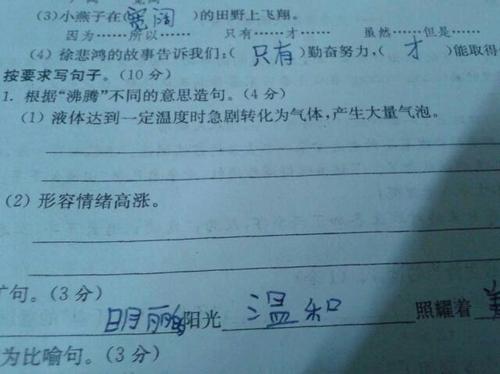 (3)小燕子在(宽阔)的田野上飞翔。
因为……所以…… 只有……才…… 虽然……但是……
(4)徐悲鸿的故事告诉我们:(只有)勤奋努力,(才)能取得
按要求写句子。(10分)
1. 根据“沸腾”不同的意思造句。(4分)
(1)液体达到一定温度时急剧转化为气体,产生大量气泡。
(2)形容情绪高涨。
扩句。(3分)
阳光温和照耀着
为比喻句。(3分)